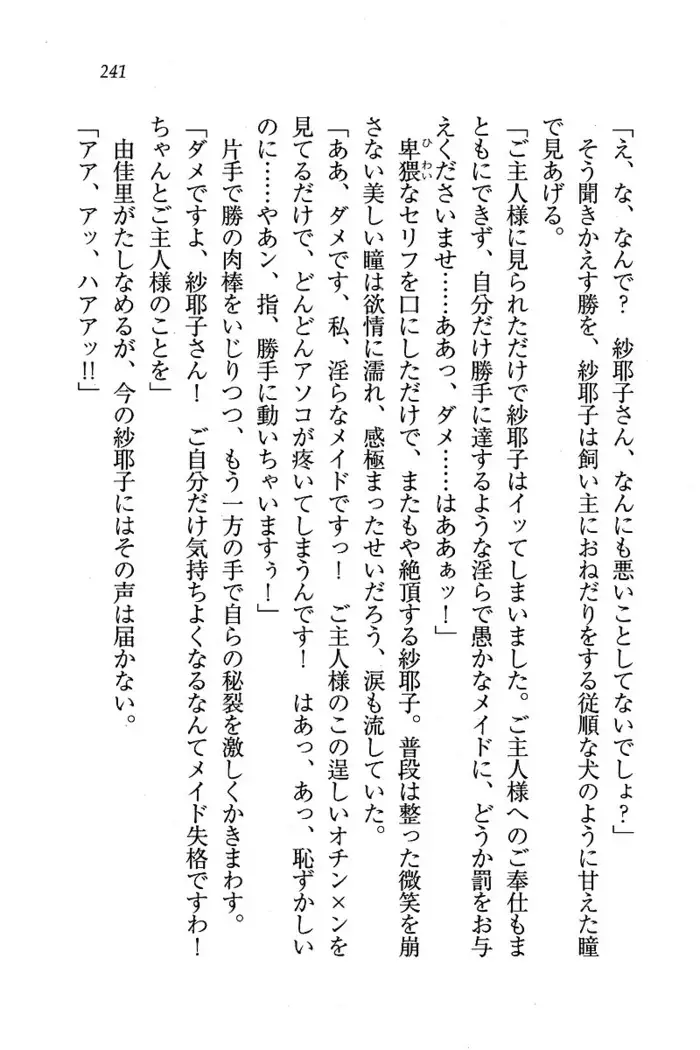 241
「え、な、なんで？　紗耶子さん、なんにも悪いことしてないでしょ？」
そう聞きかえす勝を、紗耶子は飼い主におねだりをする従順な犬のように甘えた瞳
で見あげる。
「ご主人様に見られただけで紗耶子はイッてしまいました。ご主人様へのご奉仕もま
ともにできず、自分だけ勝手に達するような淫らで愚かなメイドに、どうか罰をお与
えくださいませ……ああっ、ダメ……はああぁッ！」
卑猥なセリフを口にしただけで、またもや絶頂する紗耶子。普段は整った微笑を崩
さない美しい瞳は欲情に濡れ、感極まったせいだろう、涙も流していた。
「ああ、ダメです、私、淫らなメイドですっ！　ご主人様のこの逞しいオチン×ンを
見てるだけで、どんどんアソコが疼いてしまうんです！　はあっ、あっ、恥ずかしい
のに……やあン、指、勝手に動いちゃいますぅ！」
片手で勝の肉棒をいじりつつ、もう一方の手で自らの秘裂を激しくかきまわす。
「ダメですよ、紗耶子さん！　ご自分だけ気持ちよくなるなんてメイド失格ですわ！
ちゃんとご主人様のことを」
由佳里がたしなめるが、今の紗耶子にはその声は届かない。
「アア、アッ、ハアアッ!!」